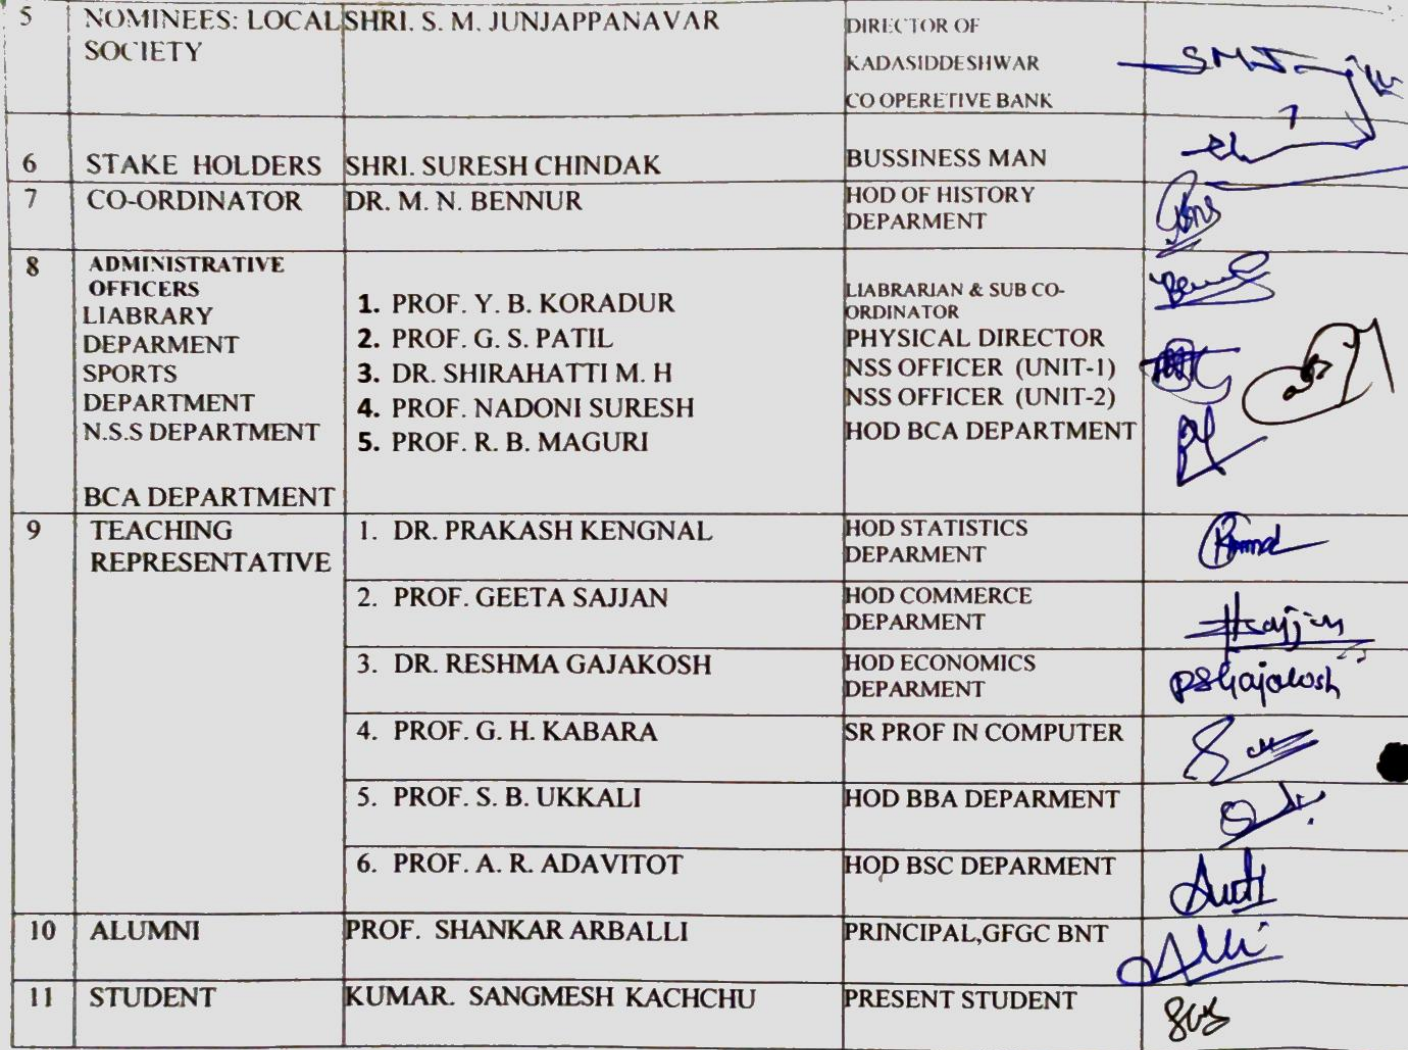 5 NOMINEES: LOCAL SHRI. S. M. JUNJAPPANAVAR DIRECTOR OF
SOCIETY KADASIDDESHWAR
CO OPERETIVE BANK
6 STAKE HOLDERS SHRI. SURESH CHINDAK BUSSINESS MAN
7 CO-ORDINATOR DR. M. N. BENNUR HOD OF HISTORY
DEPARMENT
8 ADMINISTRATIVE
OFFICERS
LIABRARY
DEPARMENT
SPORTS
DEPARTMENT
N.S.S DEPARTMENT
BCA DEPARTMENT
1. PROF. Y. B. KORADUR
2. PROF. G. S. PATIL
3. DR. SHIRAHATTI M. H
4. PROF. NADONI SURESH
5. PROF. R. B. MAGURI
LIABRARIAN & SUB CO-
ORDINATOR
PHYSICAL DIRECTOR
NSS OFFICER (UNIT-1)
NSS OFFICER (UNIT-2)
HOD BCA DEPARTMENT
9 TEACHING
REPRESENTATIVE
1. DR. PRAKASH KENGNAL HOD STATISTICS
DEPARMENT
2. PROF. GEETA SAJJAN HOD COMMERCE
DEPARMENT
3. DR. RESHMA GAJAKOSH HOD ECONOMICS
DEPARMENT
4. PROF. G. H. KABARA SR PROF IN COMPUTER
5. PROF. S. B. UKKALI HOD BBA DEPARMENT
6. PROF. A. R. ADAVITOT HOD BSC DEPARMENT
10 ALUMNI PROF. SHANKAR ARBALLI PRINCIPAL,GFGC BNT
11 STUDENT KUMAR. SANGMESH KACHCHU PRESENT STUDENT